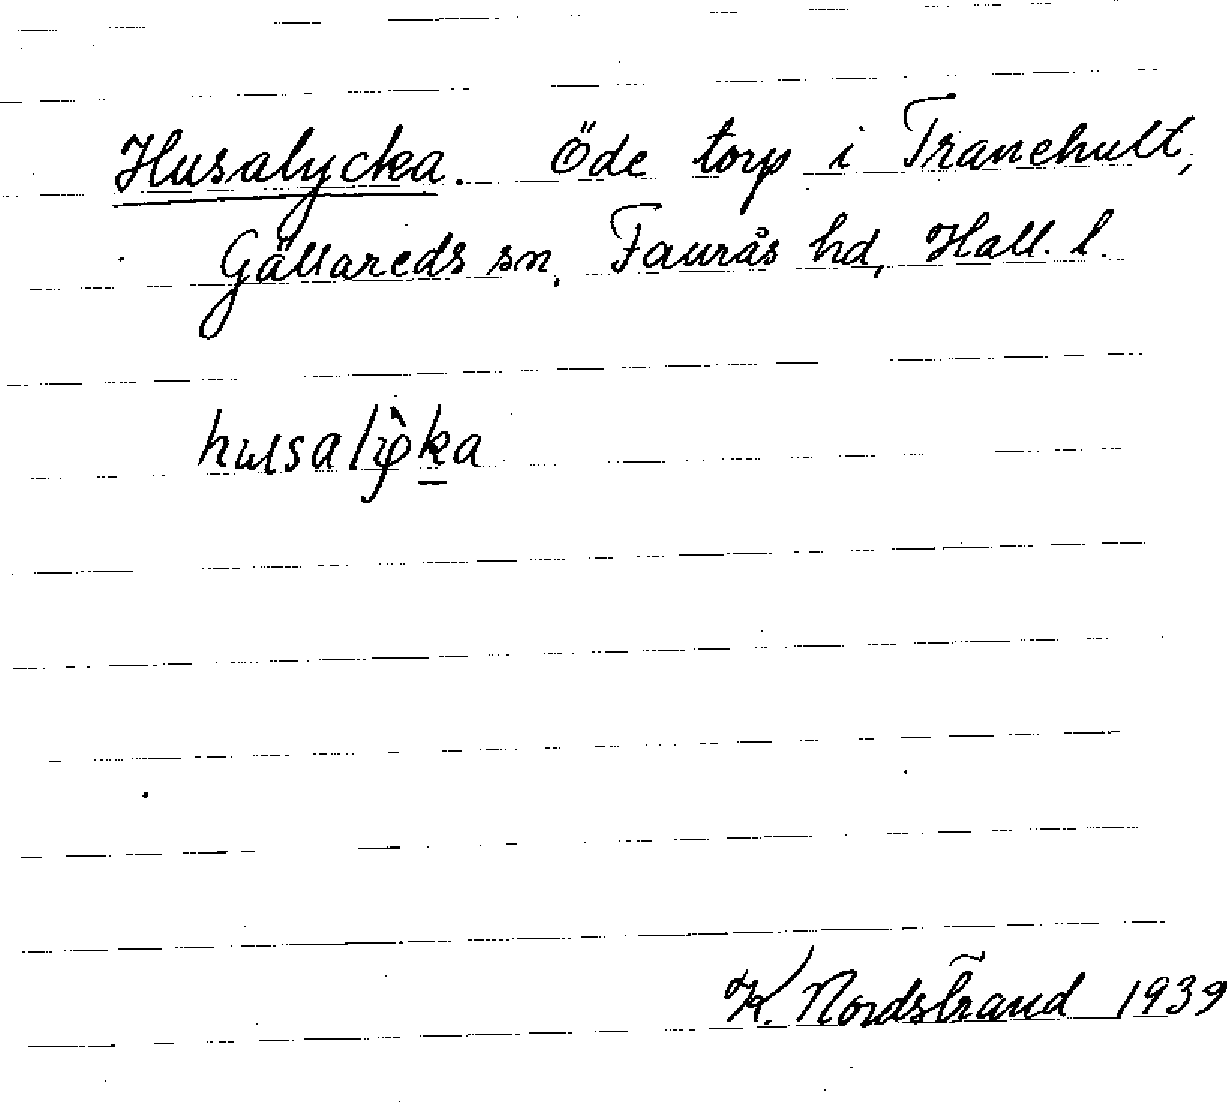 Husalycka. Öde torp i Tranehult,
Gällareds sn, Faurås hd, Hall. l.
K. Nordstrand 1939